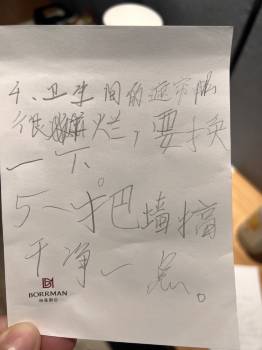 4、卫生间的遮帘
很烂，要换
一下。
5、把墙搞
干净一点。
BORRMAN